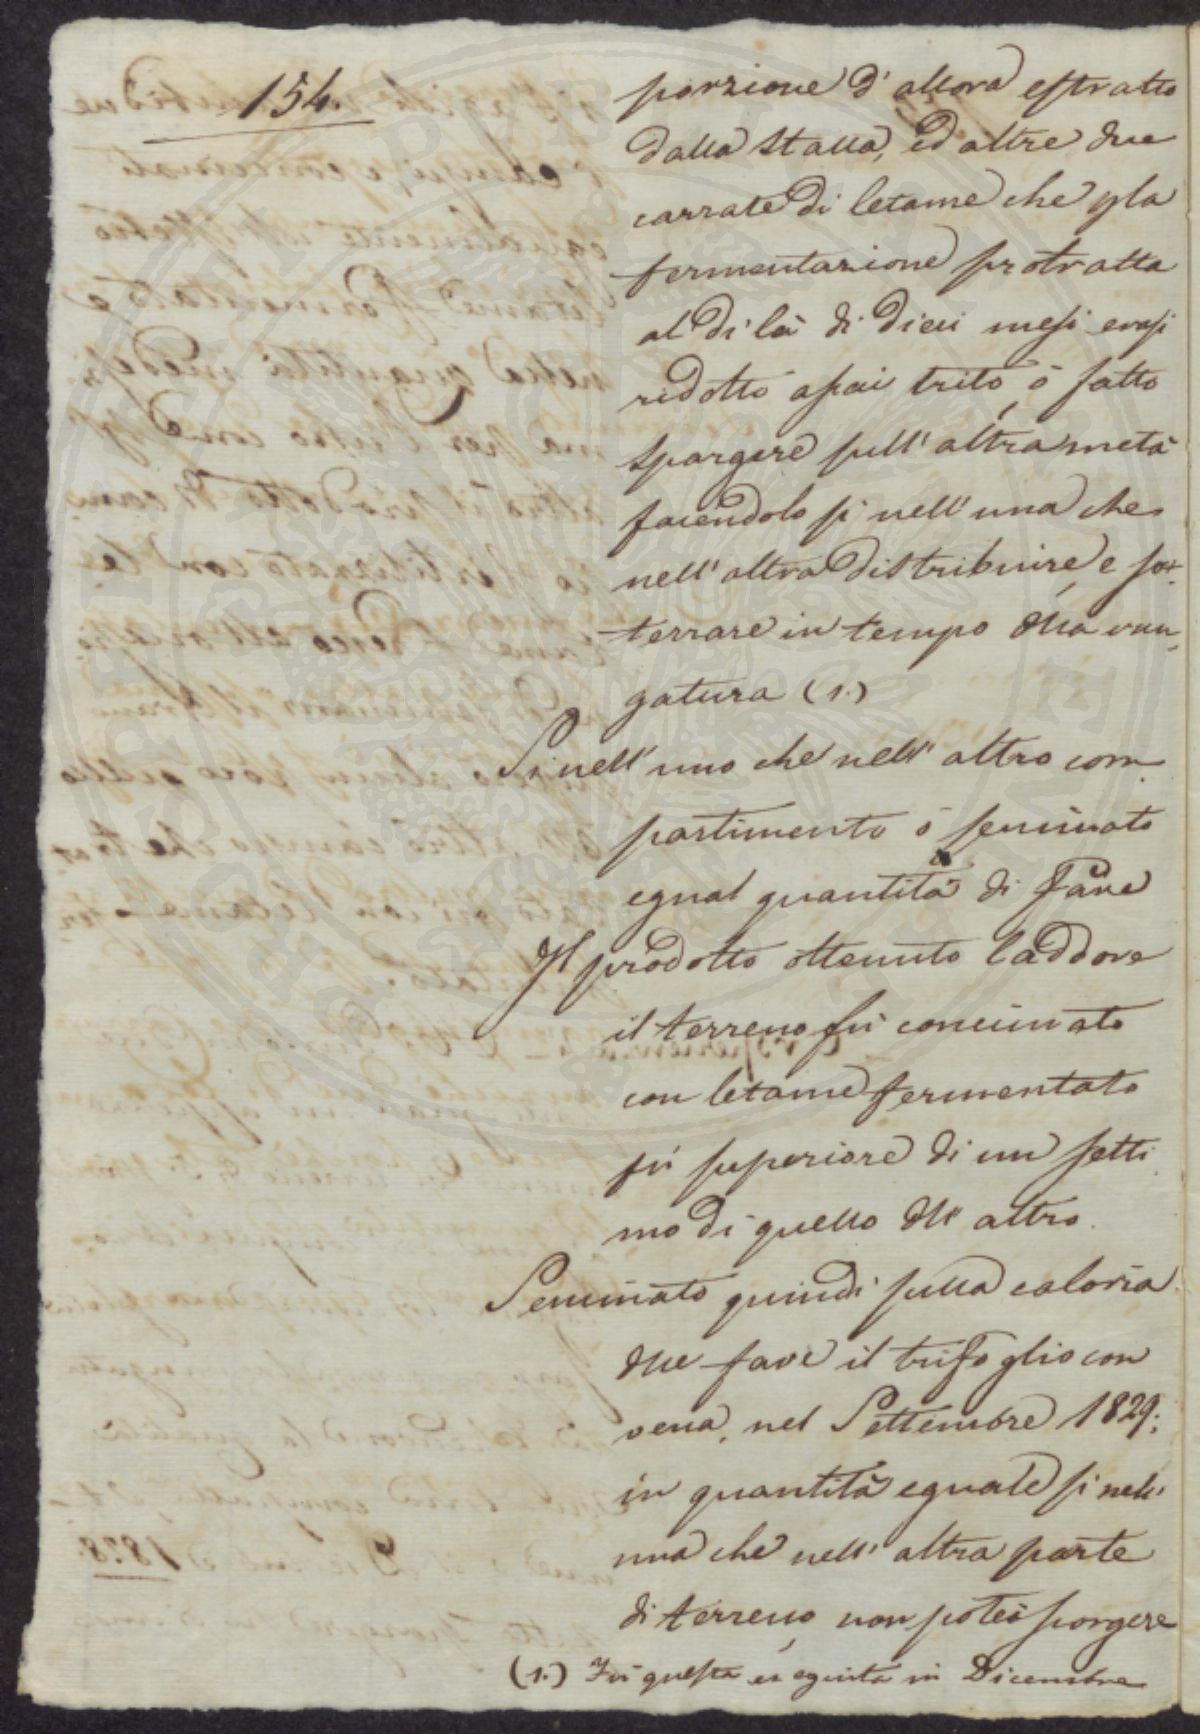 154.
porzione d'allora estratto
dalla stalla, ed altre due
carrate di letame che p la
fermentazione protratta
al di là di dieci mesi erasi
ridotto assai trito, ò fatto
spargere sull'altra metà
facendolo sì nell'una che
nell'altra distribuire, e sot-
terrare in tempo della van-
gatura (1.)
Si nell'uno che nell'altro com-
partimento ò seminato
egual quantità di Fave
Il prodotto ottenuto laddove
il terreno fù concimato
con letame fermentato
fù superiore di un setti
mo di quello dell'altro.
Seminato quindi sulla caloria
delle fave il trifoglio con
vena, nel Settembre 1829.
in quantità eguale sì nell'
una che nell'altra parte
di terreno, non potei scorgere
(1.) Fù questa eseguita in Dicembre